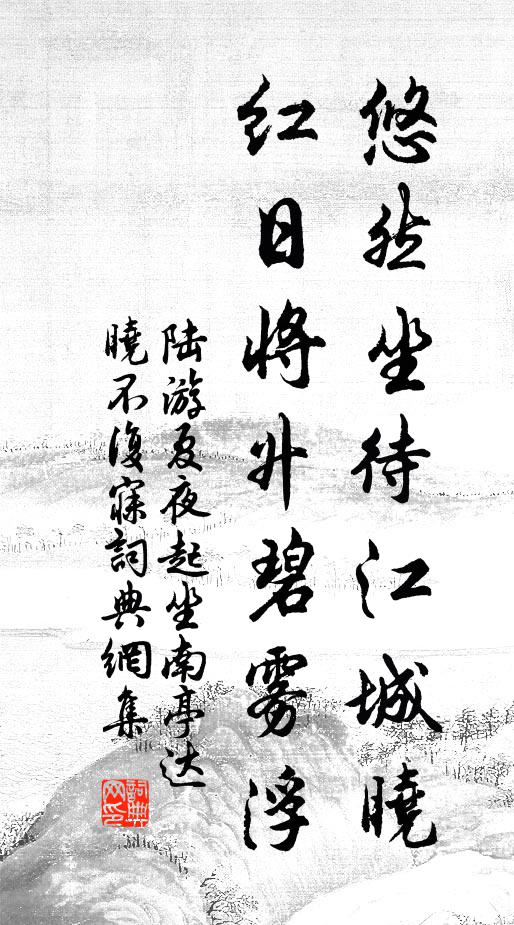 悠然坐待江城曉
紅日將升碧雾浮
陆游夏夜起坐南亭达
曉不復寐詞典網集
詞典
网印